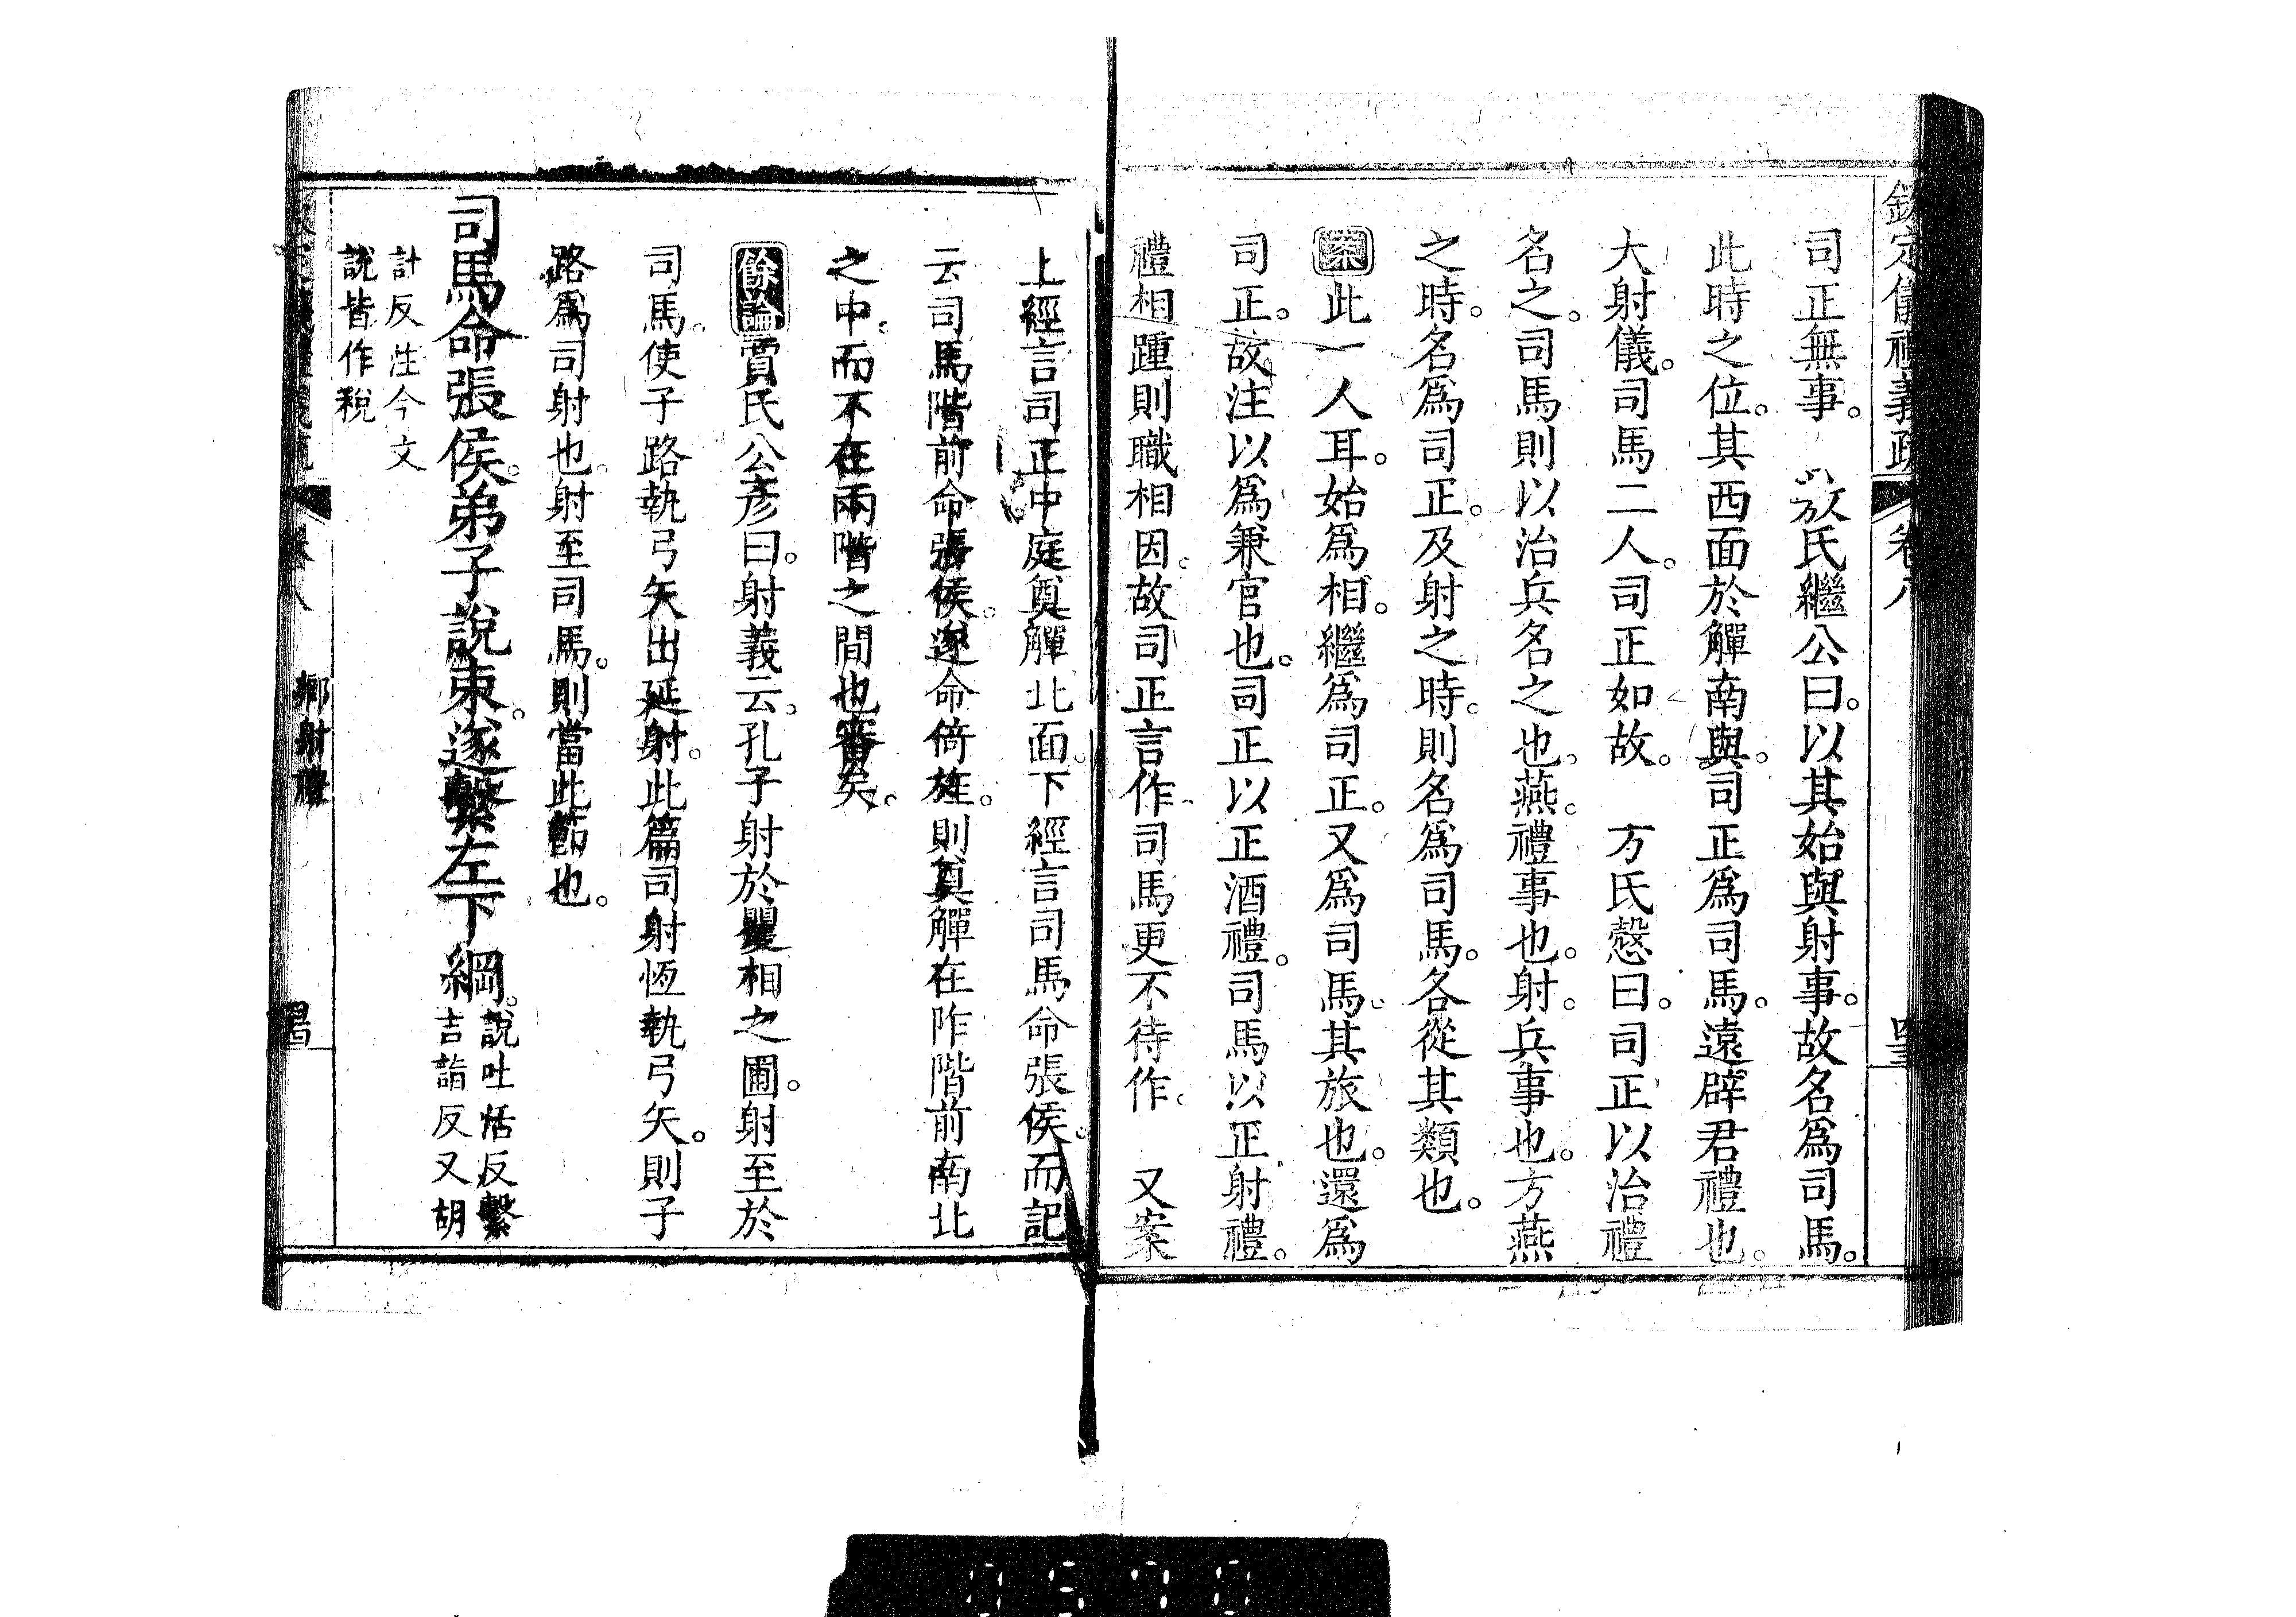 欽定儀禮義疏 卷八
司正無事。 敖氏繼公曰。以其始與射事。故名爲司馬。
此時之位。其西面於觶南與。司正爲司馬。遠辟君禮也。
大射儀。司馬二人。司正如故。 方氏慤曰。司正以治禮
名之。司馬則以治兵名之也。燕。禮事也。射。兵事也。方燕
之時。名爲司正。及射之時。則名爲司馬。各從其類也。
案此一人耳。始爲相。繼爲司正。又爲司馬。其旅也。還爲
司正。故注以爲兼官也。司正以正酒禮。司馬以正射禮。
禮相踵則職相因。故司正言作。司馬更不待作。 又案
上經言司正中庭奠觶北面。下經言司馬命張侯。而記
云司馬階前命張侯。遂命倚旌。則奠觶在阼階前南北
之中。而不在兩階之間也審矣。
餘論賈氏公彥曰。射義云。孔子射於矍相之圃。射至於
司馬。使子路執弓矢出延射。此篇司射恆執弓矢。則子
路爲司射也。射至司馬。則當此節也。
司馬命張侯。弟子說束。遂繫左下綱。說吐活反繫
吉詣反又胡
計反注今文
說皆作稅
卷八 鄉射禮